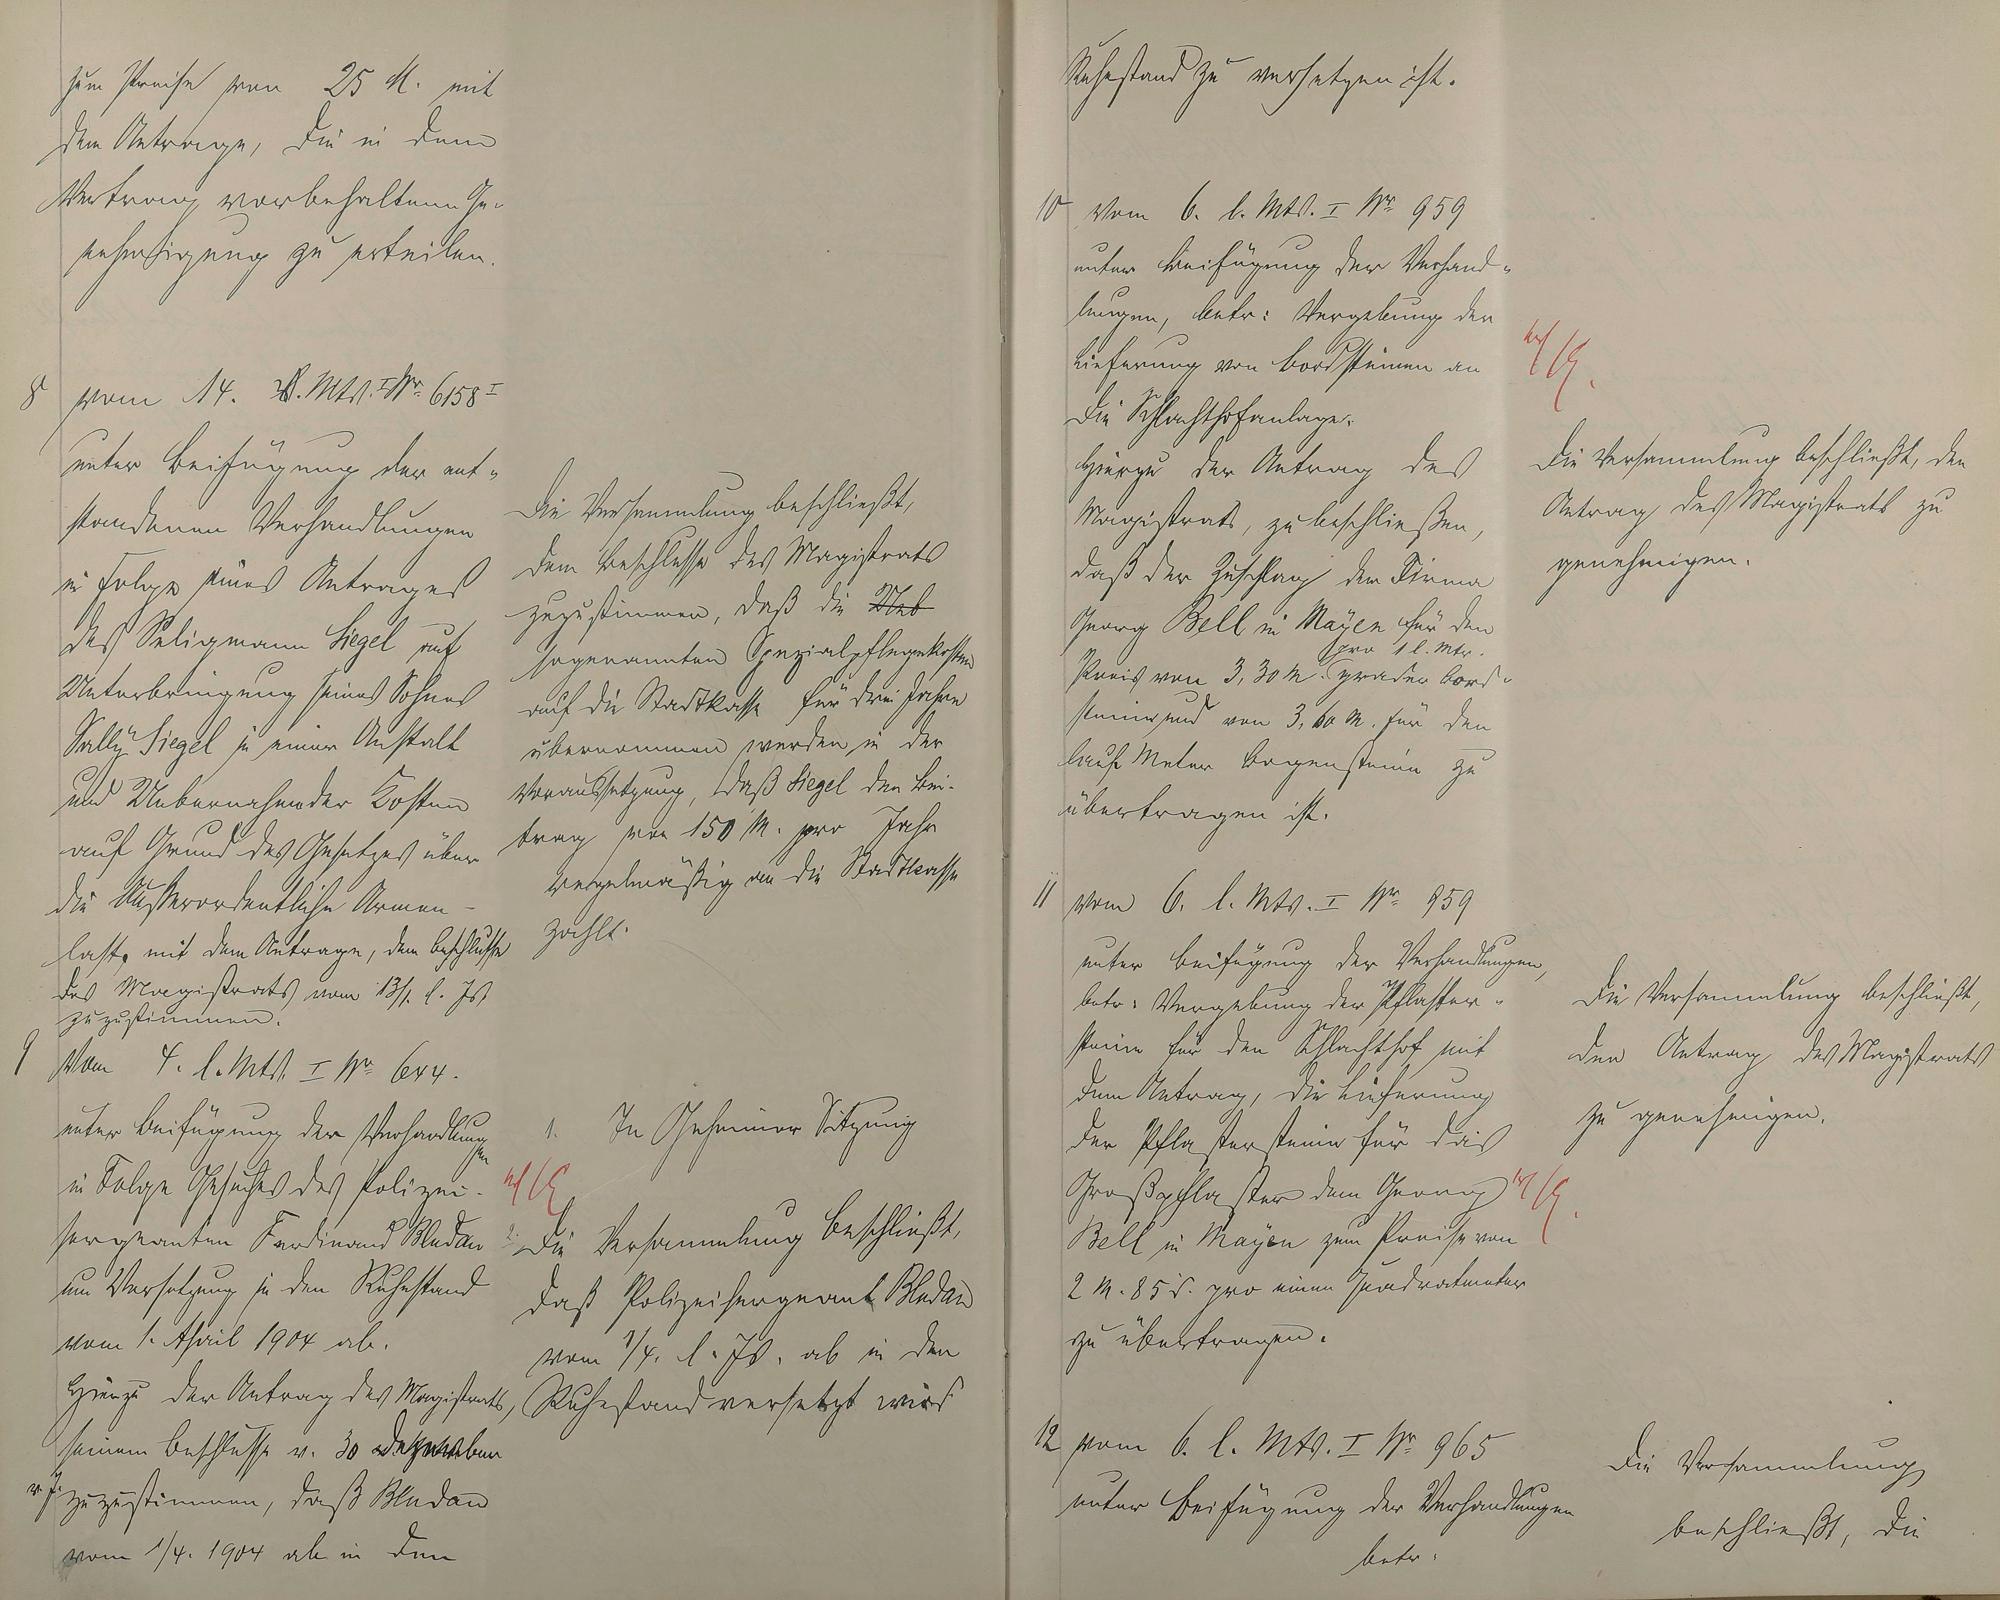 zum Preise von 25 M. mit
dem Antrage, die in dem
Vertrag vorbehaltene Ge-
nehmigung zu erteilen.
8 vom 14. v. Mts. I Nr. 6158 I
unter Beifügung der ent-
standenen Verhandlungen
in Folge eines Antrages
des Seligmann Siegel auf
Unterbringung seines Sohnes
Sally Siegel in einer Anstalt
und Uebernahme der Kosten
auf Grund des Gesetzes über
die Außerordentliche Armen-
last, mit dem Antrage, dem Beschlusse
des Magistrats vom 13/1. l. Js.
zuzustimmen.
Die Versammlung beschließt,
dem Beschlusse des Magistrats
zuzustimmen, daß die Ueb
sogenannten Spezialpflegekosten
auf die Stadtkasse für drei Jahre
übernommen werden in der
Voraussetzung, daß Siegel den Bei-
trag von 150 M. pro Jahr
regelmäßig an die Stadtkasse
zahlt.
9 vom 4. l. Mts. I Nr. 644.
unter Beifügung der Verhandlung
en
in Folge Gesuches des Polizei-
sergeanten Ferdinand Bledau
um Versetzung in den Ruhestand
vom 1. April 1904 ab.
Hierzu der Antrag des Magistrats,
seinem Beschlusse v. 30 Dezember
v. J. zuzustimmen, daß Bledau
vom 1/4. 1904 ab in den
1. In Geheimer Sitzung
2. Die Versammlung beschließt,
daß Polizeisergeant Bledau
vom 1/4. l. Js. ab in den
Ruhestand versetzt wird
Ruhestand zu versetzen ist.
10 vom 6. l. Mts. I Nr. 959
unter Beifügung der Verhand-
lungen, betr: Vergebung der
Lieferung von Bordsteinen an
die Schlachthofanlage.
Hierzu der Antrag des
Magistrats, zu beschließen,
daß der Zuschlag der Firma
Georg Bell in Mayen für den
pro 1 l. Mtr.
Preis von 3,30 M. grader Bord-
steine und von 3,60 M. für den
lauf Meter Bogensteine zu
übertragen ist.
Die Versammlung beschließt, den
Antrag des Magistrats zu
genehmigen.
11 vom 6. l. Mts. I Nr. 959
unter Beifügung der Verhandlungen,
betr: Vergebung der Pflaster-
steine für den Schlachthof mit
dem Antrag, die Lieferung
der Pflastersteine für das
Großpflaster dem Georg
Bell in Mayen zum Preise von
2 M. 85 d. pro einen Quadratmeter
zu übertragen.
Die Versammlung beschließt,
den Antrag des Magistrats
zu genehmigen.
12 vom 6. l. Mts. I Nr. 965
unter Beifügung der Verhandlungen
betr:
Die Versammlung
beschließt, die